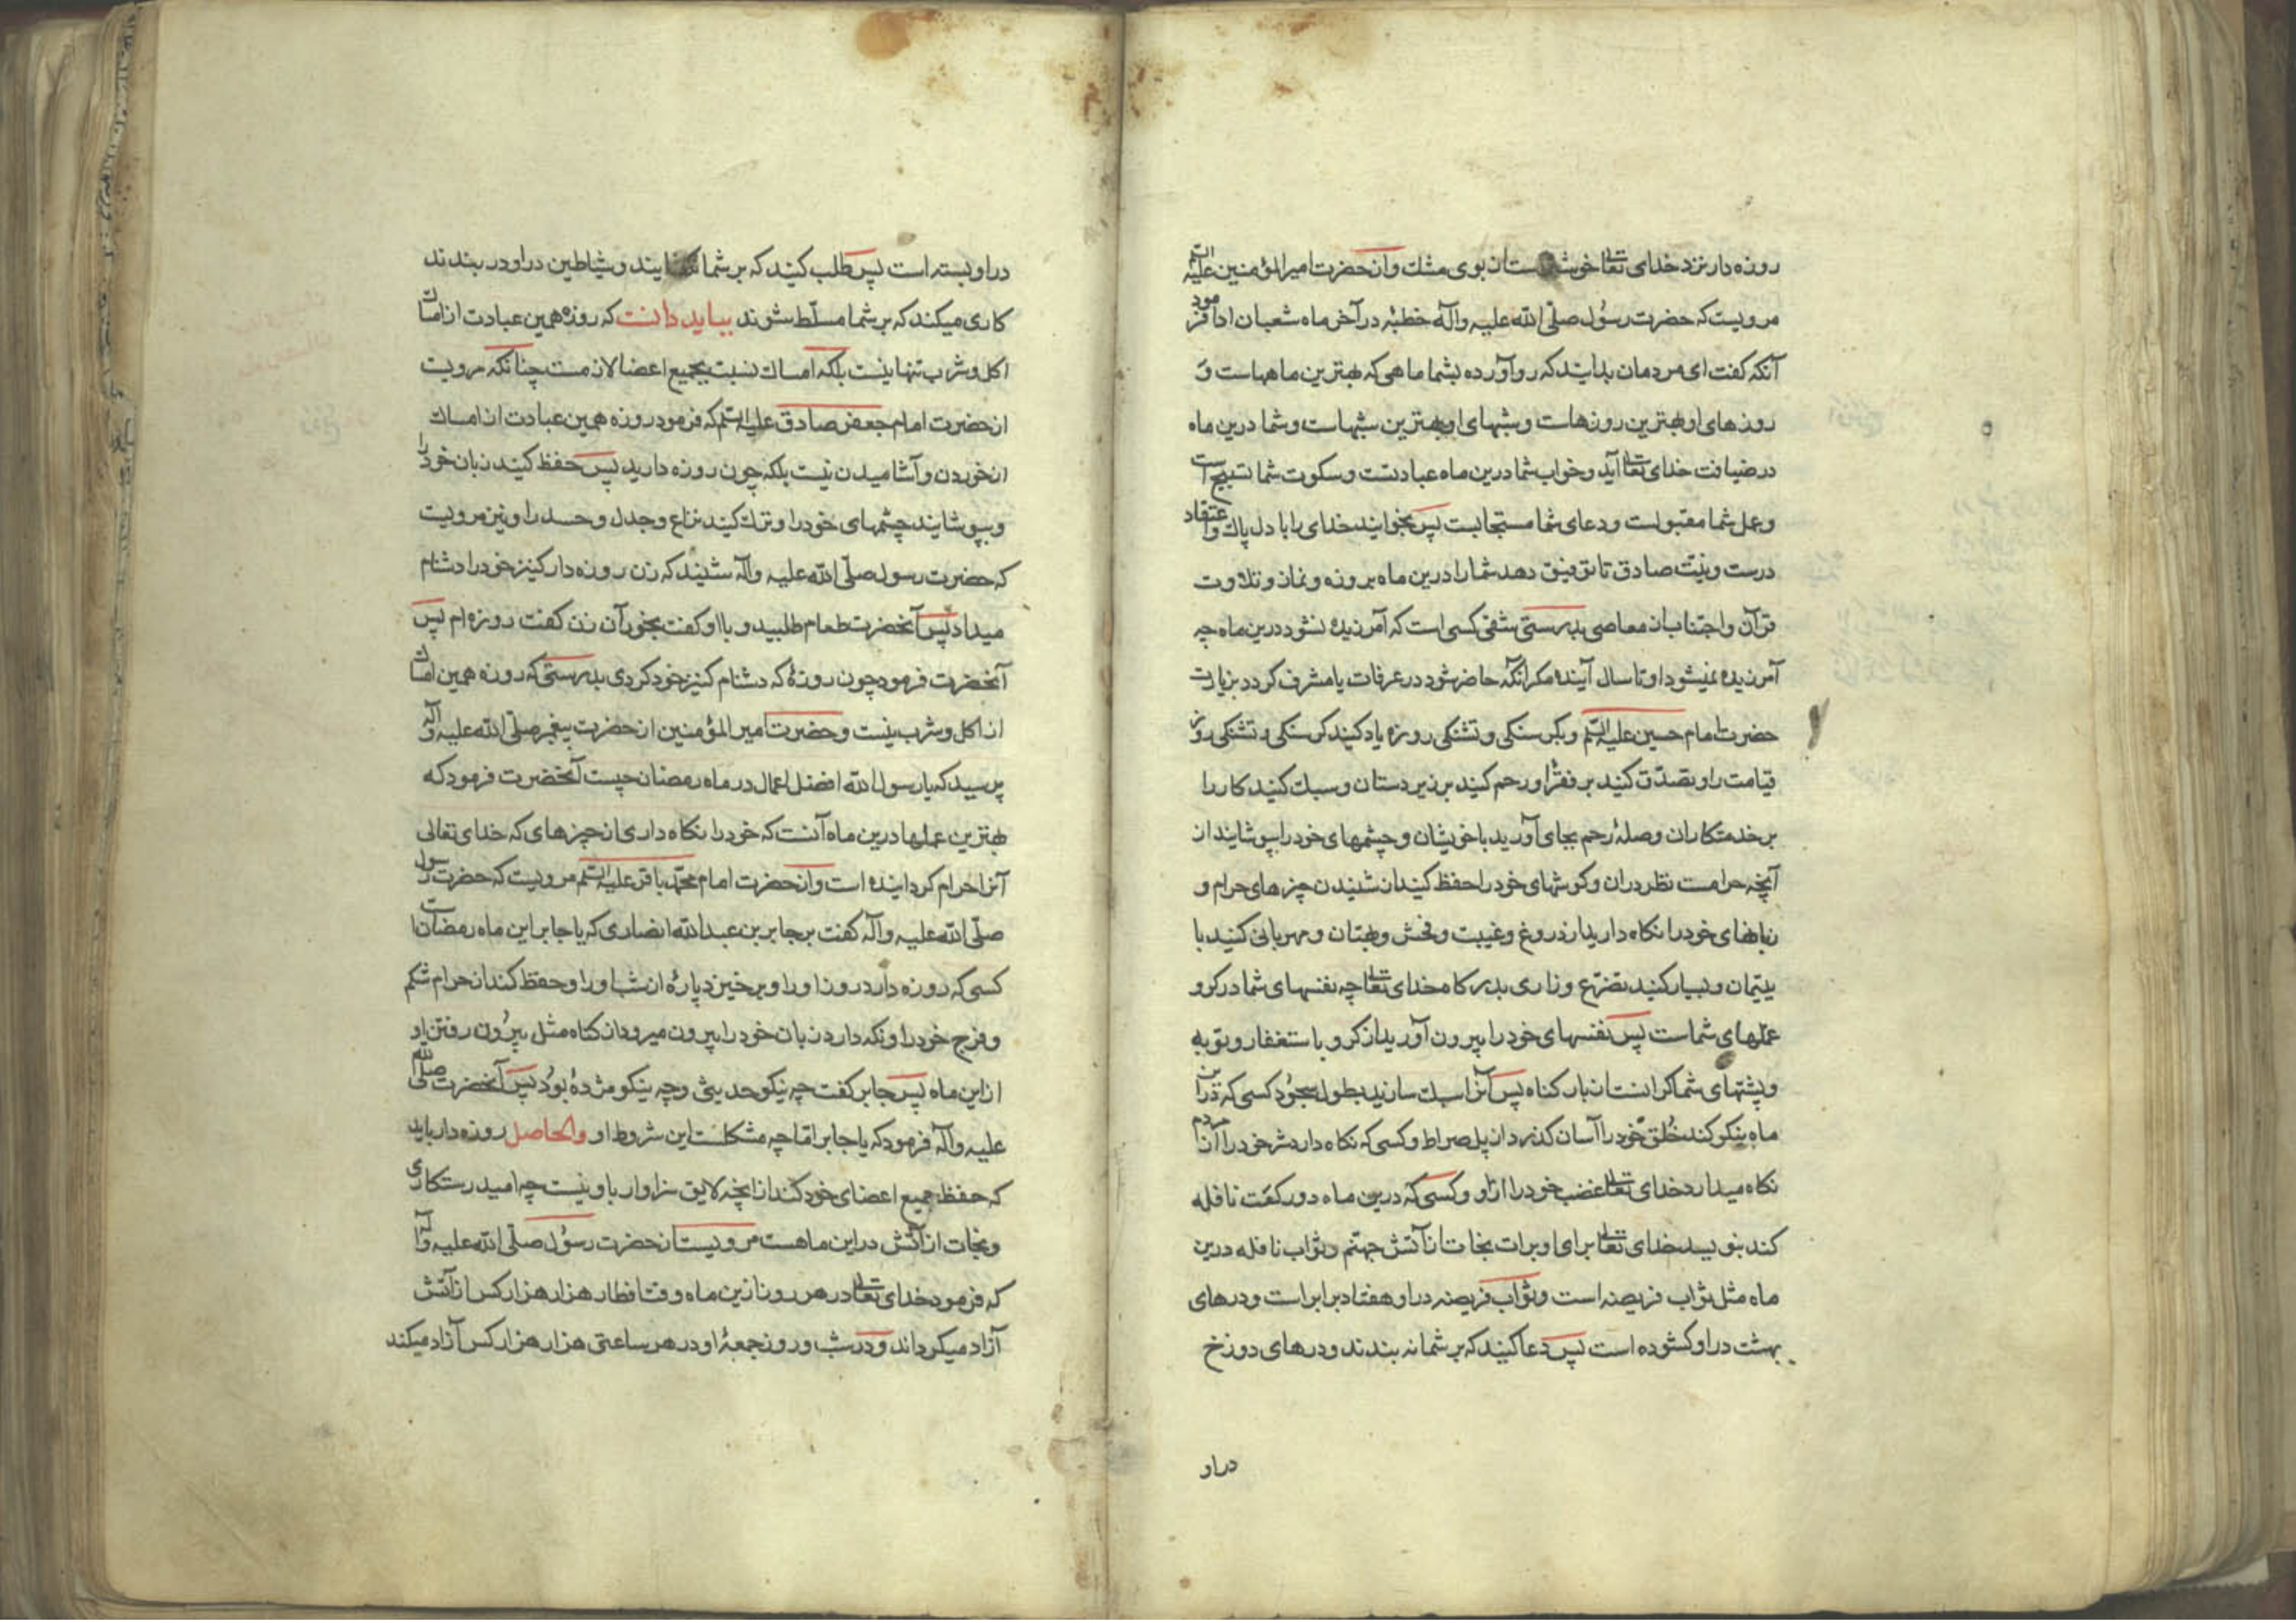 روزه دار نزد خدای تعالی خوشتر است از بوی مشك واز حضرت امیرالمؤمنین علیه السلم
مرویست که حضرت رسول صلّی الله علیه وآله خطبهٔ در آخر ماه شعبان ادا فرمود
آنکه کفت ای مردمان بدانید که رو آورده بشما ماهی که بهترین ماههاست و
روزهای او بهترین روزهاست وشبهای او بهترین شبهاست وشما درین ماه
در ضیافت خدای تعالی آید وخواب شما درین ماه عبادتست وسکوت شما تسبیح است
وعمل شما مقبولست ودعای شما مستجابست پس بخوانید خدای را با دل پاك واعتقاد
درست ونیّت صادق تا توفیق دهد شما را درین ماه بروزه ونماز وتلاوت
قرآن واجتناب از معاصی بدرستی شقی کسی است که آمرزیده نشود درین ماه چه
آمرزیده نمیشود او تا سال آینده مکر آنکه حاضر شود در عرفات یا مشرف کردد بزیارت
حضرت امام حسین علیه السلم وبکرسنکی وتشنکی روزه یاد کنید کرسنکی وتشنکی روز
قیامت را وتصدّق کنید بر فقرا ورحم کنید بر زیردستان وسبك کنید کار را
بر خدمتکاران وصلهٔ رحم بجای آورید با خویشان وچشمهای خود را بپوشایند از
آنچه حرامست نظر در ان وکوشهای خود را حفظ کنید از شنیدن چیزهای حرام و
زبانهای خود را نکاه دارید از دروغ وغیبت وفحش وبهتان ومهربانی کنید با
یتیمان وبسیار کنید تضرّع وزاری بدرکاه خدای تعالی چه نفسهای شما در کرو
عملهای شماست پس نفسهای خود را بیرون آورید از کرو باستغفار وتوبه
وپشتهای شما کرانست از بار کناه پس آنرا سبك سازید بطول سجود کسی که درین
ماه نیکو کند خُلق خود را آسان کذرد از پل صراط وکسی که نکاه دارد شر خود را از مردم
نکاه میدارد خدای تعالی غضب خود را از او وکسی که درین ماه دو رکعت نافله
کند بنویسد خدای تعالی برای او برات نجات از آتش جهنّم وثواب نافله درین
ماه مثل ثواب فریضه است وثواب فریضه در او هفتاد برابر است ودرهای
بهشت در او کشوده است پس دعا کنید که بر شما نه بندند ودرهای دوزخ
دراو
دراو بسته است پس طلب کنید که بر شما نکشایند وشیاطین دراو در بندند
کاری میکند که بر شما مسلّط شوند بباید دانست که روزه همین عبادت از امساك
اکل وشرب تنها نیست بلکه امساك نسبت بجمیع اعضا لازمست چنانکه مرویست
از حضرت امام جعفر صادق علیه السلم که فرمود روزه همین عبادت از امساك
از خوردن وآشامیدن نیست بلکه چون روزه دارید پس حفظ کنید زبان خود را
وبپوشایند چشمهای خود را وترك کنید نزاع وجدل وحسد را ونیز مرویست
که حضرت رسول صلّی الله علیه وآله شنید که زن روزه دار کنیز خود را دشنام
میداد پس آنحضرت طعام طلبید وبا او کفت بخور آن زن کفت روزه ام پس
آنحضرت فرمود چون روزهٔ که دشنام کنیز خود کردی بدرستی که روزه همین امساك
از اکل وشرب نیست وحضرت امیرالمؤمنین از حضرت پیغمبر صلّی الله علیه وآله
پرسید که یا رسول الله افضل اعمال در ماه رمضان چیست آنحضرت فرمود که
بهترین عملها درین ماه آنست که خود را نکاه داری از چیزهای که خدای تعالی
آنرا حرام کردانیده است واز حضرت امام محمّد باقر علیه السلم مرویست که حضرت رسول
صلّی الله علیه وآله کفت بر جابر بن عبدالله انصاری که یا جابر این ماه رمضان است
کسی که روزه دارد روز او را وبرخیزد پارهٔ از شب او را وحفظ کند از حرام شکم
وفرج خود را ونکه دارد زبان خود را بیرون میرود از کناه مثل بیرون رفتن او
از این ماه پس جابر کفت چه نیکو حدیثی وچه نیکو مژدهٔ بود پس آنحضرت صلی الله
علیه وآله فرمود که یا جابر امّا چه مشکلست این شروط او والحاصل روزه دار باید
که حفظ جمیع اعضای خود کند از آنچه لایق سزاوار باو نیست چه امید رستکاری
ونجات از آتش در این ماهست مرویست از حضرت رسول صلّی الله علیه وآله
که فرمود خدای تعالی در هر روز ازین ماه وقت افطار هزار هزار کس از آتش
آزاد میکرداند ودر شب وروز جمعهٔ او در هر ساعتی هزار هزار کس آزاد میکند